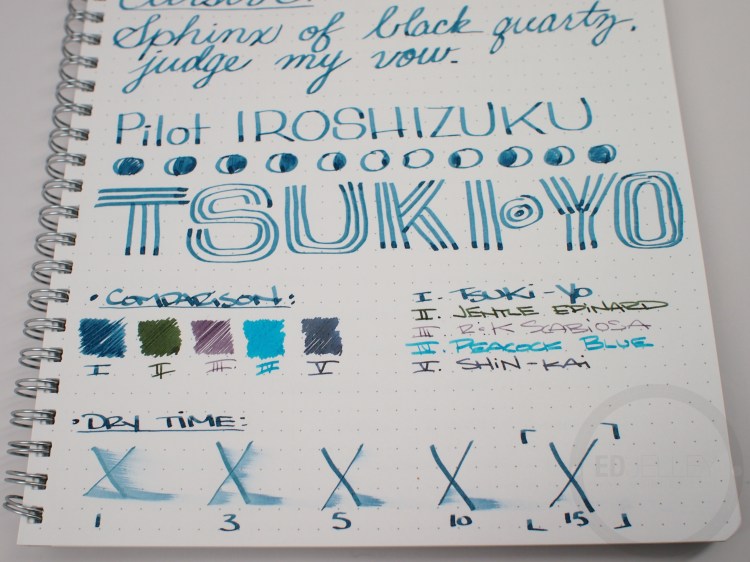 Cursive:
Sphinx of black quartz,
judge my vow.
Pilot IROSHIZUKU
TSUKI•YO
• COMPARISON:
I II III IV V
I. TSUKI-YO
II. JENTLE EPINARD
III. R&K SCABIOSA
IV. PEACOCK BLUE
V. SHIN-KAI
• DRY TIME:
X X X X X
1 3 5 10 15
ED JELLEY